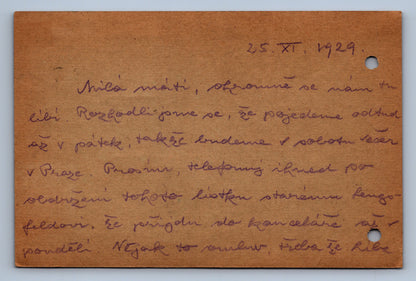 25. XI. 1929.
Milá máti, ohromně se nám tu
líbí. Rozhodli jsme se, že pojedeme odtud
až v pátek, takže budeme v sobotu večer
v Praze. Prosím, telefonuj ihned po
obdržení tohoto lístku starému Lengs-
feldovi. že přijdu do kanceláře až v
pondělí. Nějak to omluv, třeba že